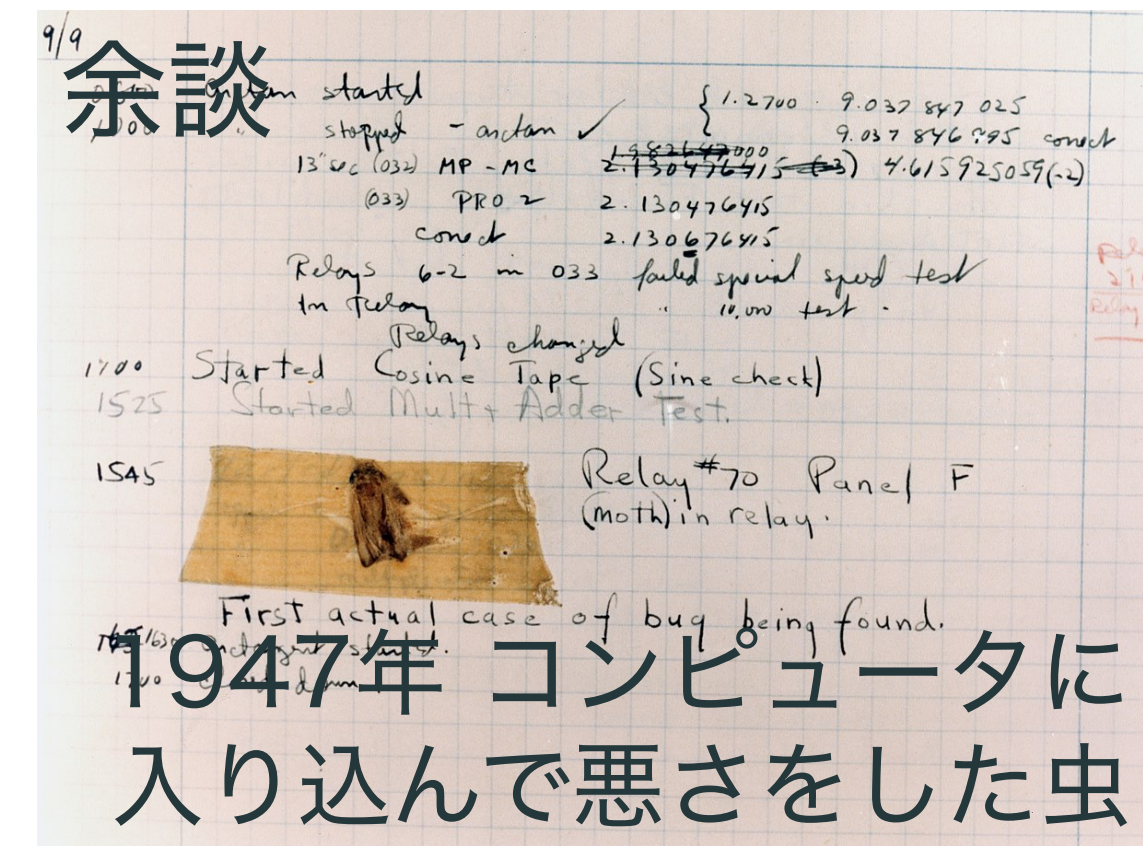 9/9
余談
started
stopped - arctan ✓
{ 1.2700 9.037 847 025
9.037 846 995 correct
13" sec (032) MP - MC 4.615925059(-2)
(033) PRO 2 2.130476415
correct 2.130676415
Relays 6-2 in 033 failed special speed test
In Relay " 10,000 test .
Relays changed
1700 Started Cosine Tape (Sine check)
1525 Started Mult + Adder Test.
1545 Relay #70 Panel F
(moth) in relay.
First actual case of bug being found.
1630 started.
1700 closed down.
1947年 コンピュータに
入り込んで悪さをした虫